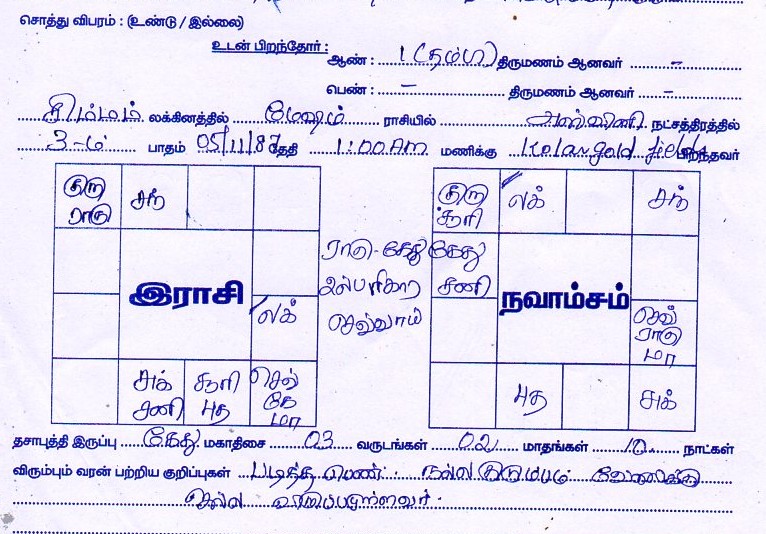 சொத்து விபரம் : (உண்டு / இல்லை)
உடன் பிறந்தோர் : ஆண் : 1 (தம்பி) திருமணம் ஆனவர் -
பெண் : - திருமணம் ஆனவர் -
சிம்மம் லக்கினத்தில் மேஷம் ராசியில் அஸ்வினி நட்சத்திரத்தில்
3-ம் பாதம் 05/11/87 தேதி 1:00AM மணிக்கு Kolar gold fields பிறந்தவர்
குரு ராகு சந்
இராசி
லக்
சுக் சனி சூரி புத செவ் கே மா
ராகு-கேது
செவ்வாய்
குரு சூரி லக் சந்
கேது சனி
நவாம்சம்
செவ் ராகு மா
புத சுக்
தசாபுத்தி இருப்பு கேது மகாதிசை 03 வருடங்கள் 02 மாதங்கள் 10 நாட்கள்
விரும்பும் வரன் பற்றிய குறிப்புகள் படித்த பெண். நல்ல குடும்பம் வேலைக்கு
செல்ல விருப்பமுள்ளவர்.